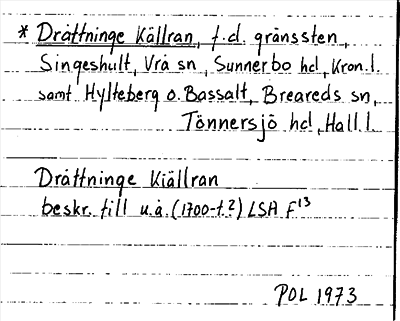 * Dråttninge Källran, f.d. gränssten,
Singeshult, Vrå sn, Sunnerbo hd, Kron.l.
samt Hylteberg o. Bassalt, Breareds sn,
Tönnersjö hd, Hall.l.
Dråttninge Kiällran
beskr. till u.å. (1700-t.?) LSA F¹³
POL 1973